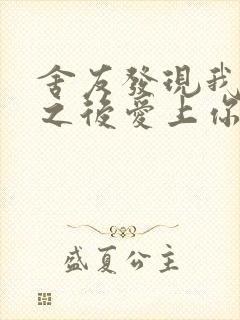 舍友發現我
之後愛上你
盛夏公主